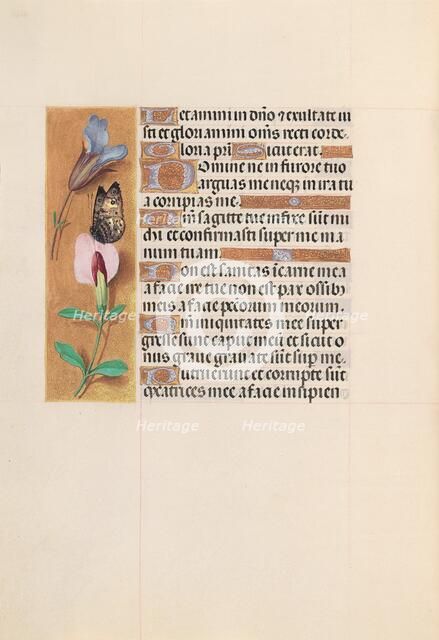 Letamini in dño ⁊ exultate iu
sti et gloriamini om̃s recti corde.
Gloria pr̃i Sicut erat.
Domine ne in furore tuo
arguas me neqꝫ in ira tu
a corripias me.
Qm̃ sagitte tue infixe sũt mi
chi et confirmasti super me ma
num tuam.
Non est sanitas ĩ carne mea
a facie ire tue non est pax ossibꝰ
meis a facie peccatorum meorum.
Qm̃ iniquitates mee super
gresse sunt caput meũ et sicut o
nus graue grauate sũt sup me.
Putruerunt et corrupte sũt
cicatrices mee a facie insipien
Heritage Heritage
Heritage Heritage
Heritage Heritage